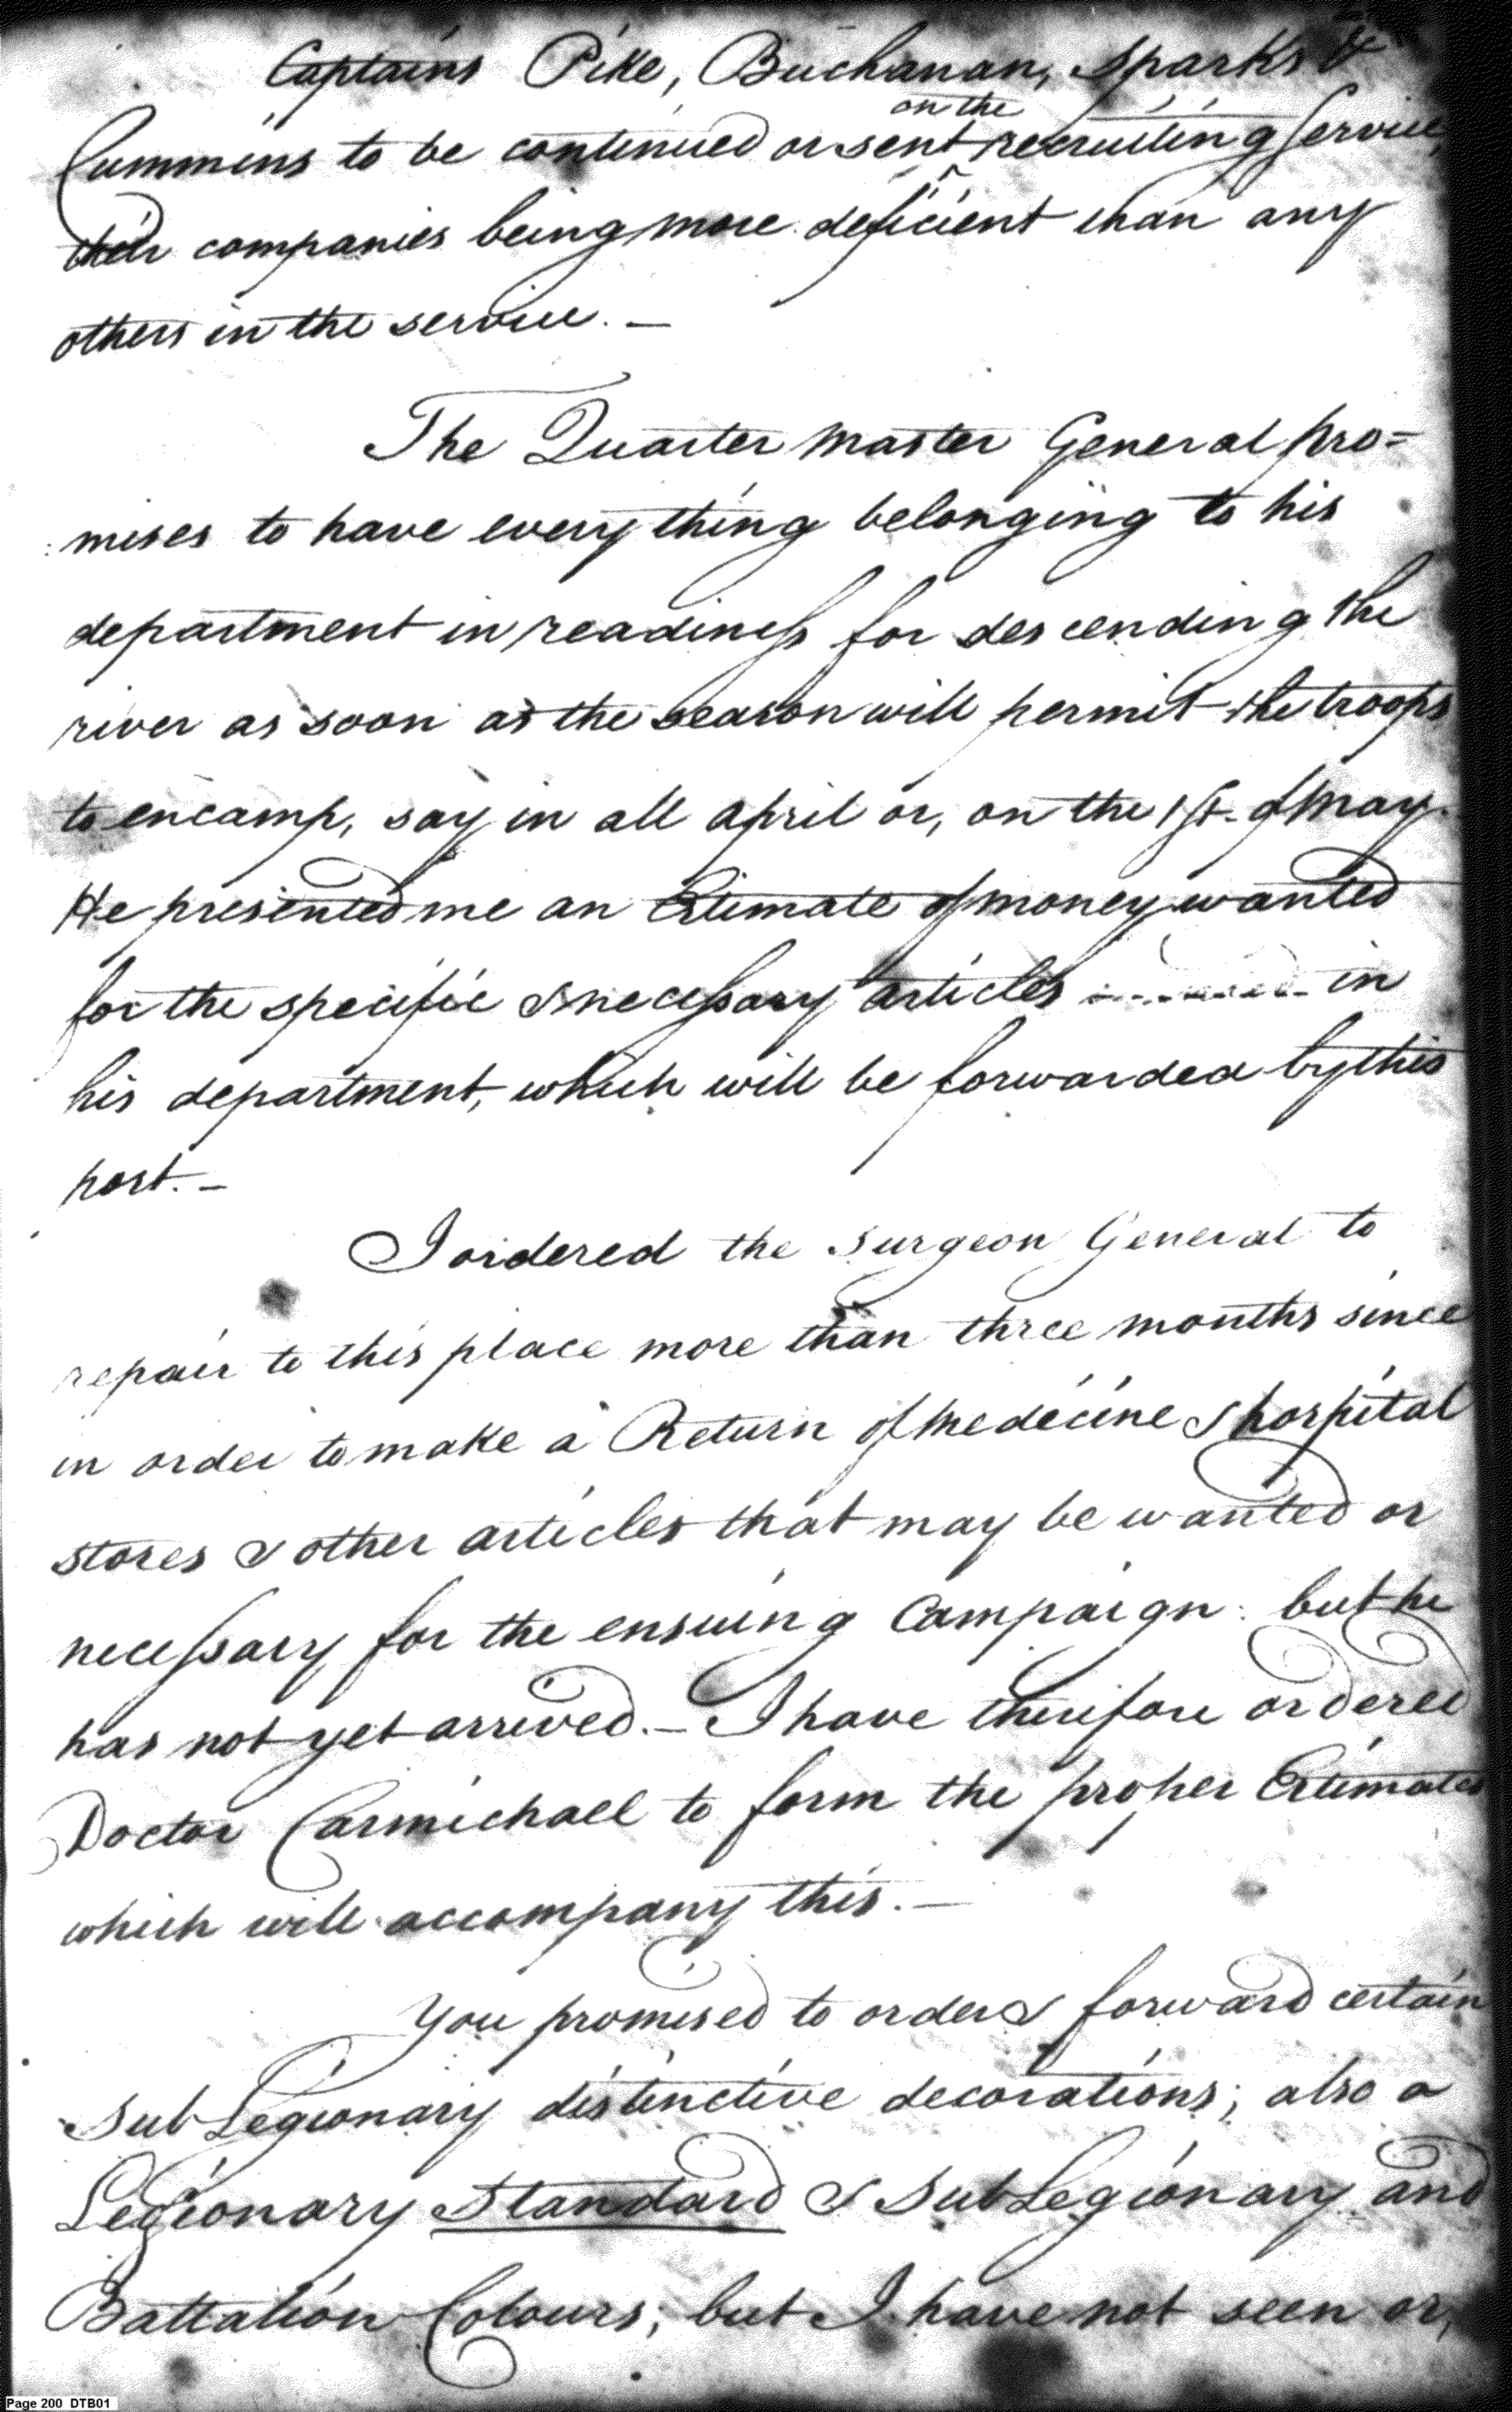 Captains Pike, Buchanan, Sparks &
on the
Cummins to be continued or sent ^ recruiting Service,
their companies being more deficient than any
others in the service. —
The Quarter Master General pro=
:mises to have every thing belonging to his
department in readiness for descending the
river as soon as the season will permit the troops
to encamp, say in all April or, on the 1st. of May.
He presented me an Estimate of money wanted
for the specific & necessary articles in
his department, which will be forwarded by this
post. —
I ordered the Surgeon General to
repair to this place more than three months since
in order to make a Return of Medicine & hospital
stores & other articles that may be wanted or
necessary for the ensuing Campaign: but he
has not yet arrived. — I have therefore ordered
Doctor Carmichael to form the proper Estimates
which will accompany this. —
You promised to order & forward certain
Sub Legionary distinctive decorations; also a
Legionary Standard & Sub Legionary and
Battalion Colours; but I have not seen or,
Page 200 DTB01